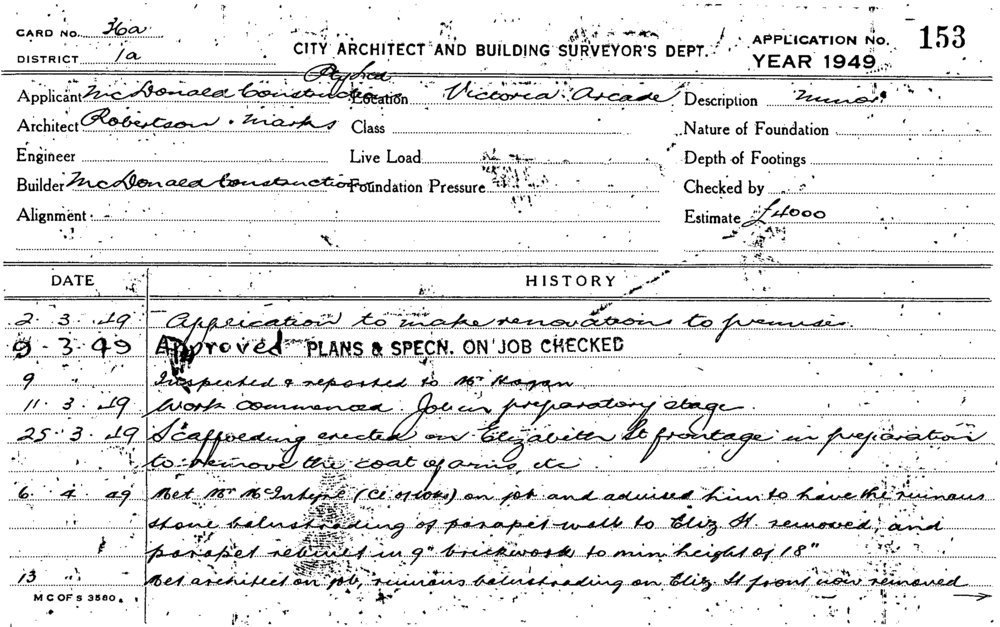 CARD NO. 36a
DISTRICT 1a
CITY ARCHITECT AND BUILDING SURVEYOR'S DEPT.
APPLICATION NO. 153
YEAR 1949
Applicant McDonald Construction
Location Victoria Arcade
Description Minor
Architect Robertson & Marks
Class
Nature of Foundation
Engineer
Live Load
Depth of Footings
Builder McDonald Construction
Foundation Pressure
Checked by
Alignment
Estimate £4000
DATE HISTORY
2 . 3 . 49 Application to make renovations to premises.
9 . 3 . 49 Approved PLANS & SPECN. ON JOB CHECKED
9 " Inspected & reported to Mr Hogan
11 . 3 . 49 Work commenced. Job in preparatory stage.
25 . 3 . 49 Scaffolding erected on Elizabeth St frontage in preparation
to remove the coat of arms, etc
6 . 4 . 49 Met Mr McIntyre (Cl of Wks) on job and advised him to have the ruinous
stone balustrading of parapet wall to Eliz St removed, and
parapet rebuilt in 9" brickwork to min height of 18"
13 " Met architect on job, ruinous balustrading on Eliz St front now removed
M C OF S 3580